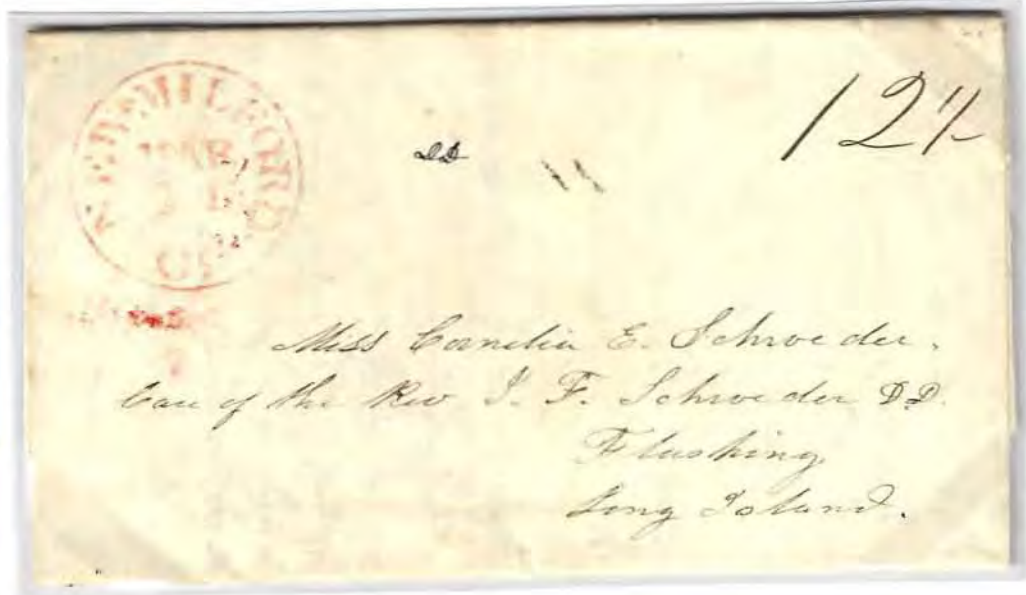 MILFORD
CT
12½
Miss Cornelia E. Schroeder.
Care of the Rev J. F. Schroeder D.D.
Flushing
Long Island.